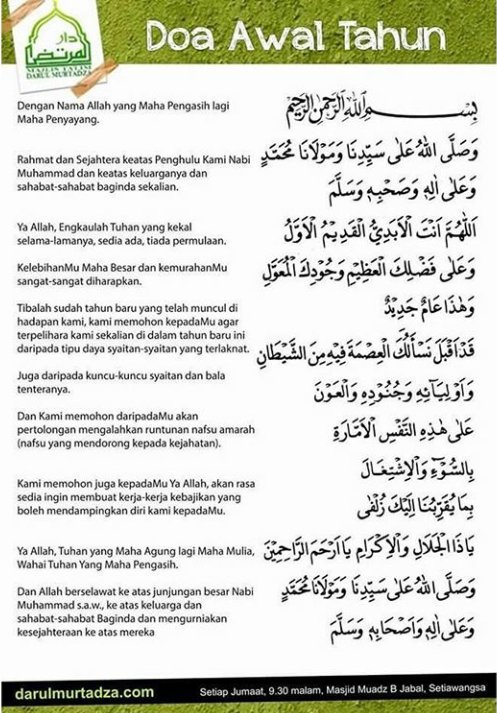 دار المرتضى
MAJLIS YATIM
DARUL MURTADZA
Doa Awal Tahun
Dengan Nama Allah yang Maha Pengasih lagi
Maha Penyayang.
بِسْــــمِ اللهِ الرَّحْمٰنِ الرَّحِيْمِ
Rahmat dan Sejahtera keatas Penghulu Kami Nabi
Muhammad dan keatas keluarganya dan
sahabat-sahabat baginda sekalian.
وَصَلَّى اللهُ عَلٰى سَيِّدِنَا وَمَوْلَانَا مُحَمَّدٍ
وَعَلٰى اٰلِهٖ وَصَحْبِهٖ وَسَلَّمَ
Ya Allah, Engkaulah Tuhan yang kekal
selama-lamanya, sedia ada, tiada permulaan.
اَللّٰهُمَّ اَنْتَ الْاَبَدِيُّ الْقَدِيْمُ الْاَوَّلُ
KelebihanMu Maha Besar dan kemurahanMu
sangat-sangat diharapkan.
وَعَلٰى فَضْلِكَ الْعَظِيْمِ وَجُوْدِكَ الْمُعَوَّلِ
Tibalah sudah tahun baru yang telah muncul di
hadapan kami, kami memohon kepadaMu agar
terpelihara kami sekalian di dalam tahun baru ini
daripada tipu daya syaitan-syaitan yang terlaknat.
وَهٰذَا عَامٌ جَدِيْدٌ
قَدْ اَقْبَلَ نَسْأَلُكَ الْعِصْمَةَ فِيْهِ مِنَ الشَّيْطَانِ
Juga daripada kuncu-kuncu syaitan dan bala
tenteranya.
وَاَوْلِيَائِهٖ وَجُنُوْدِهٖ وَالْعَوْنَ
Dan Kami memohon daripadaMu akan
pertolongan mengalahkan runtunan nafsu amarah
(nafsu yang mendorong kepada kejahatan).
عَلٰى هٰذِهِ النَّفْسِ الْاَمَّارَةِ
بِالسُّوْٓءِ وَالْاِشْتِغَالَ
Kami memohon juga kepadaMu Ya Allah, akan rasa
sedia ingin membuat kerja-kerja kebajikan yang
boleh mendampingkan diri kami kepadaMu.
بِمَا يُقَرِّبُنَا اِلَيْكَ زُلْفٰى
Ya Allah, Tuhan yang Maha Agung lagi Maha Mulia,
Wahai Tuhan Yang Maha Pengasih.
يَاذَا الْجَلَالِ وَالْاِكْرَامِ يَا اَرْحَمَ الرَّاحِمِيْنَ
Dan Allah berselawat ke atas junjungan besar Nabi
Muhammad s.a.w., ke atas keluarga dan
sahabat-sahabat Baginda dan mengurniakan
kesejahteraan ke atas mereka
وَصَلَّى اللهُ عَلٰى سَيِّدِنَا وَمَوْلَانَا مُحَمَّدٍ
وَعَلٰى اٰلِهٖ وَاَصْحَابِهٖ وَسَلَّمَ
darulmurtadza.com
Setiap Jumaat, 9.30 malam, Masjid Muadz B Jabal, Setiawangsa